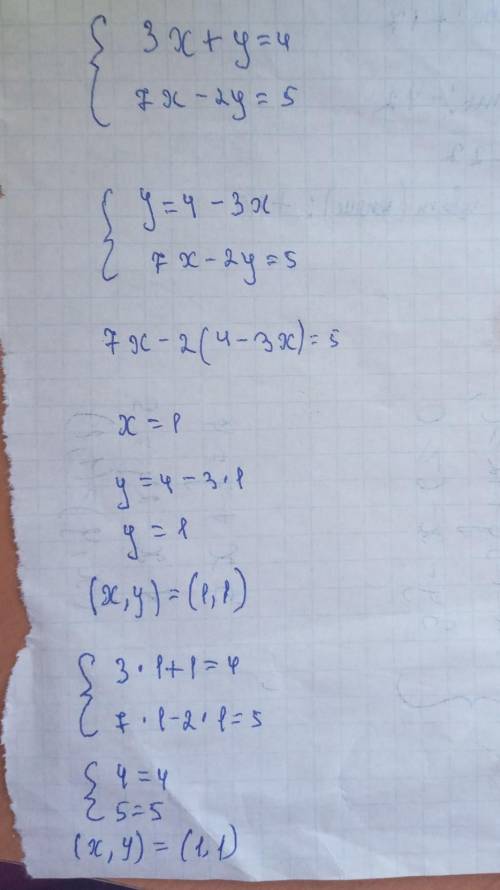 3x + y = 4
7x - 2y = 5
y = 4 - 3x
7x - 2y = 5
7x - 2(4 - 3x) = 5
x = 1
y = 4 - 3 · 1
y = 1
(x, y) = (1, 1)
3 · 1 + 1 = 4
7 · 1 - 2 · 1 = 5
4 = 4
5 = 5
(x, y) = (1, 1)